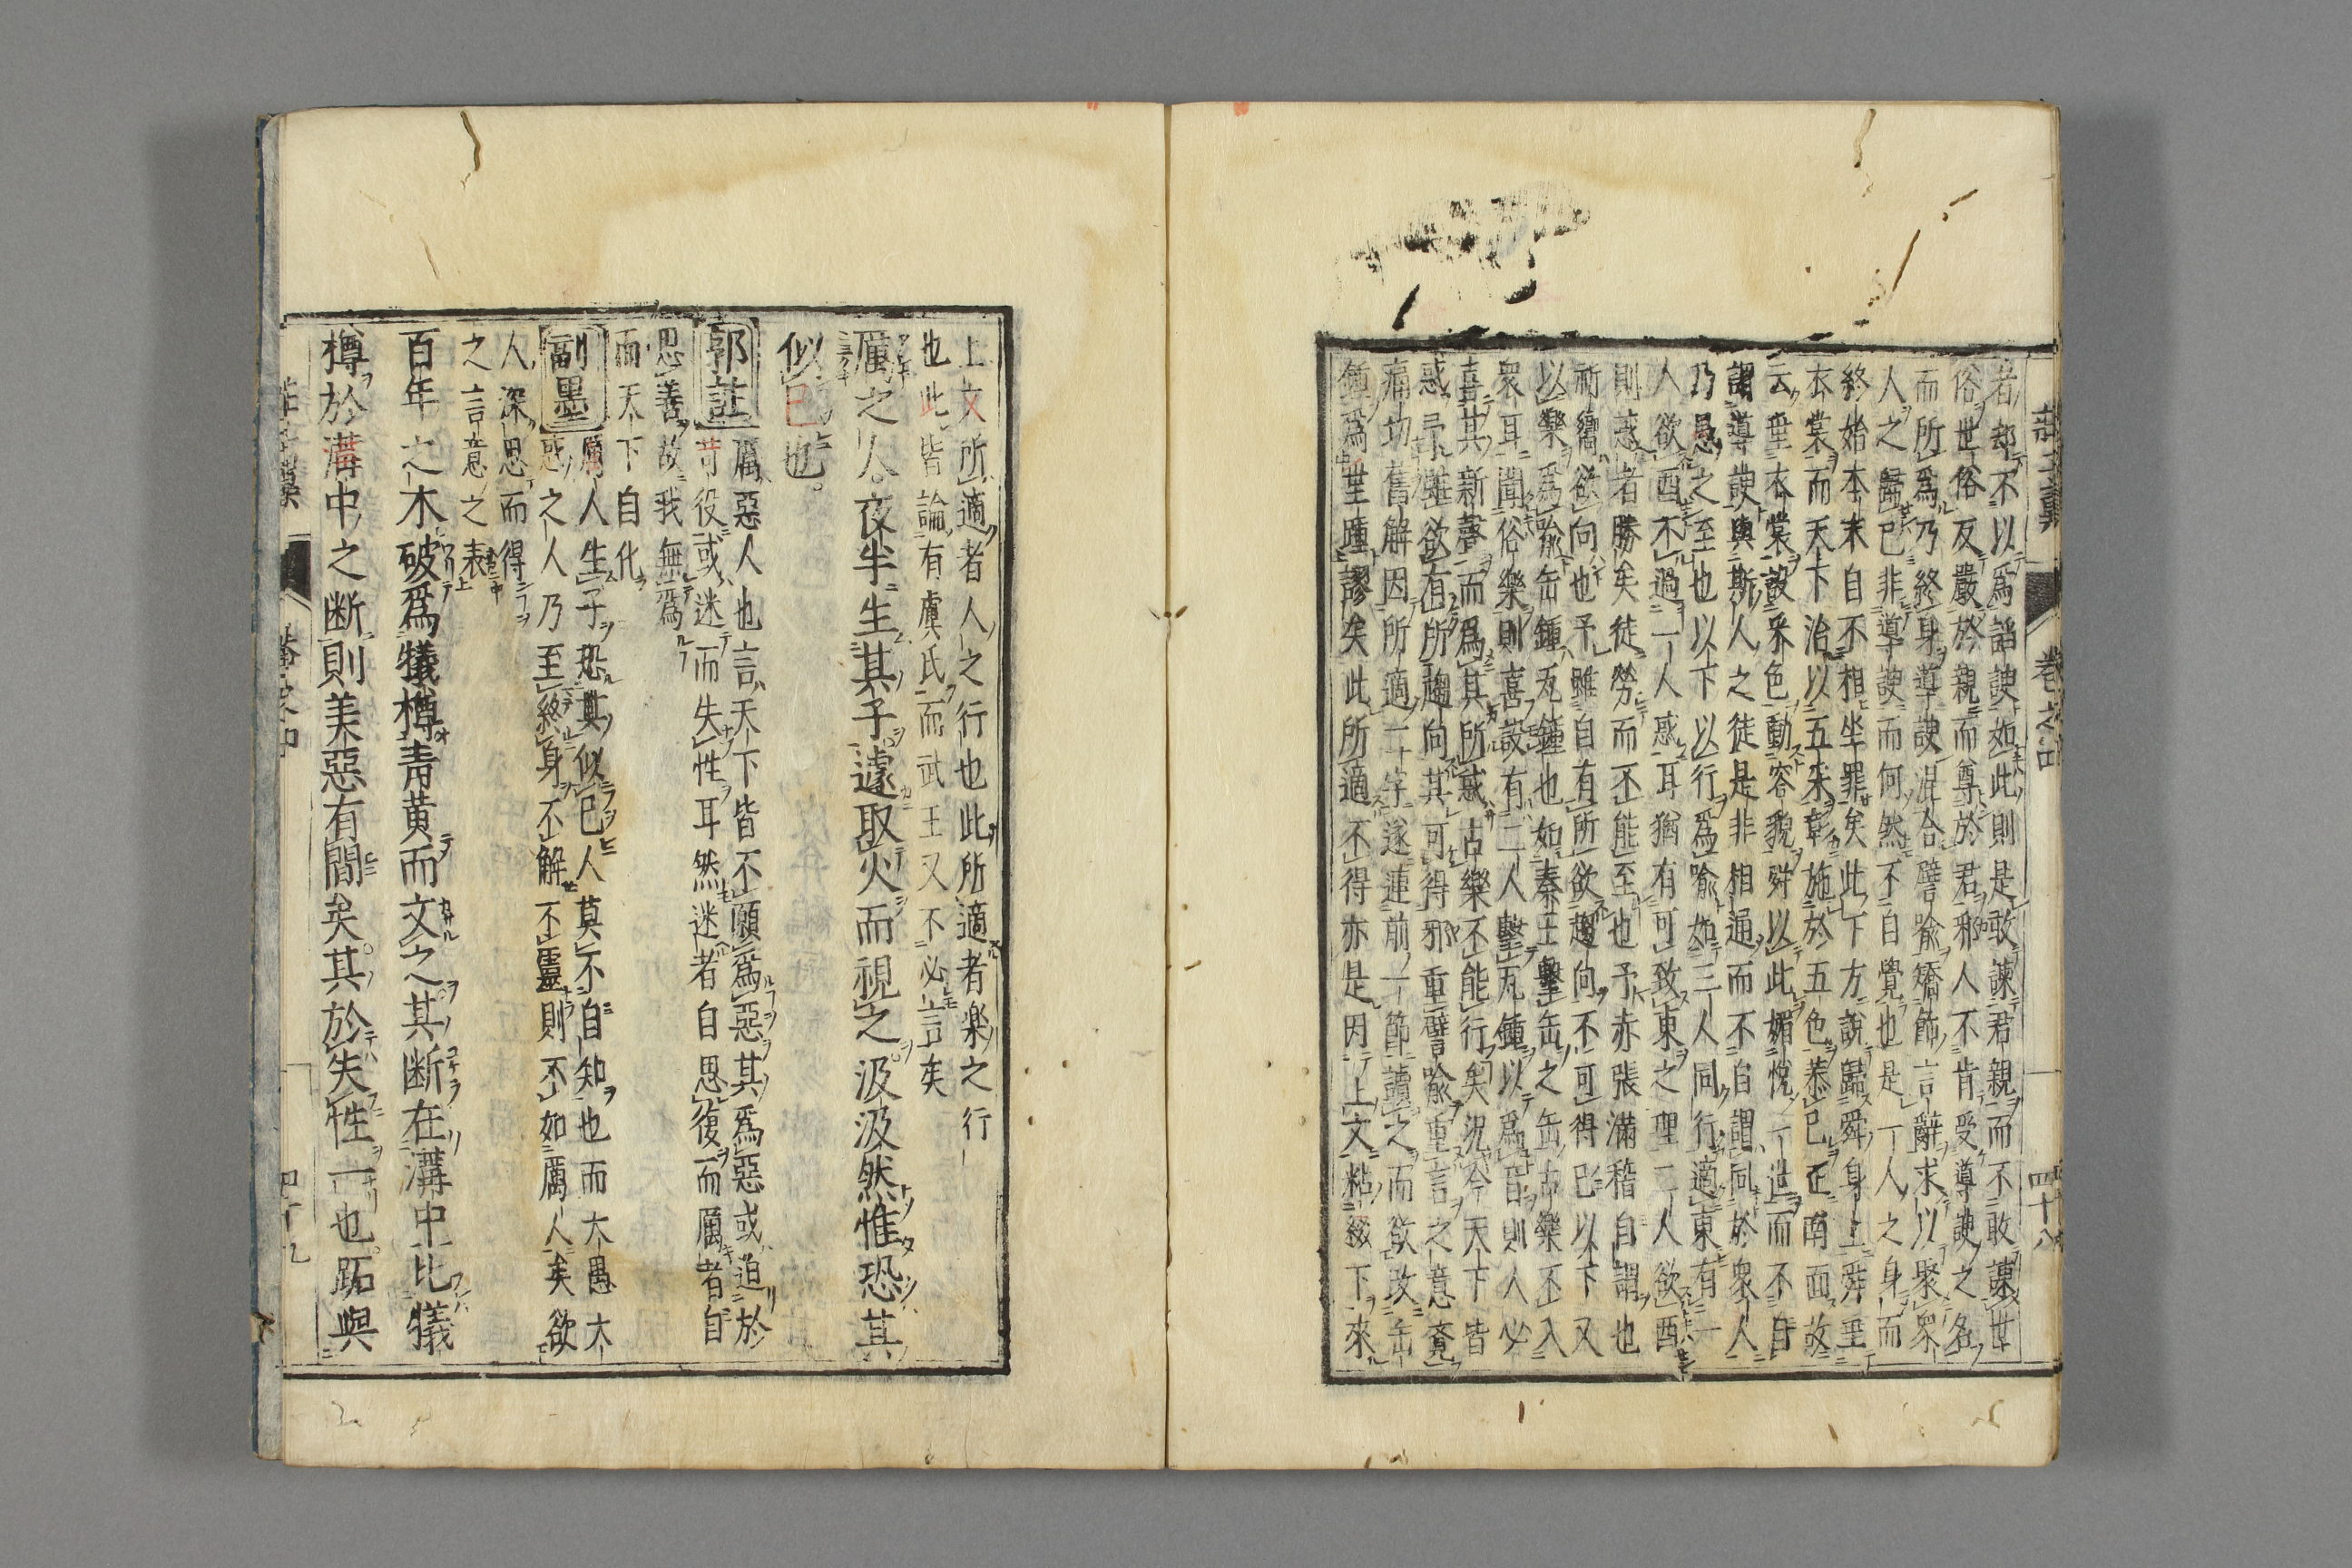 者却不以爲諂諛如此則是敢諫君親而不敢諫世
俗世俗反嚴於親而尊於君邪人不肯受導諛之名
而所爲乃終身導諛混合譬喩矯飾言辭求以聚衆
人之歸已非導諛而何然不自覺也是一人之身而
終始本末自不相坐罪矣此下方說歸舜身上舜垂
衣裳而天下治以五朱彰施於五色恭已正南面故
云垂衣裳設采色動容貌舜以此媚悅一世而不自
謂導諛與斯人之徒是非相通而不自謂同於衆人
乃愚之至也以下以行爲喩如三人同行適東有一
人欲西不過一人惑耳猶有可致東之理二人欲西
則惑者勝矣徒勞而不能至也予赤張滿稽自謂也
祈嚮欲向也予雖自有所欲趨向不可得已以下又
以樂爲喩缶鍾瓦鐘也如秦王擊缶之缶古樂不入
衆耳聞俗樂則喜設有二人擊瓦鍾以爲音則人必
喜其新聲而爲其所惑古樂不能行矣況今天下皆
惑予雖欲有所趨向其可得邪重譬喩重言之意竟
痛切舊解因所適二字逐連前一節讀之而欲改缶
鍾爲垂踵謬矣此所適不得亦是因上文粘綴下來
卷之四
四十八
上文所適者人之行也此所適者樂之行
也此皆論有虞氏而武王又不必言矣
厲之人夜半生其子遽取火而視之汲汲然惟恐其
似已也
郭註 厲惡人也言天下皆不願爲惡其爲惡或迫於
苛役或迷而失性耳然迷者自思復而厲者自
思善故我無爲
而天下自化
副墨 厲人生子恐其似已人莫不自知也而大愚大
惑之人乃至終身不解不靈則不如厲人矣欲
人深思而得
之言意之表
百年之木破爲犧樽靑黃而文之其斷在溝中比犧
樽於溝中之斷則美惡有間矣其於失性一也跖與